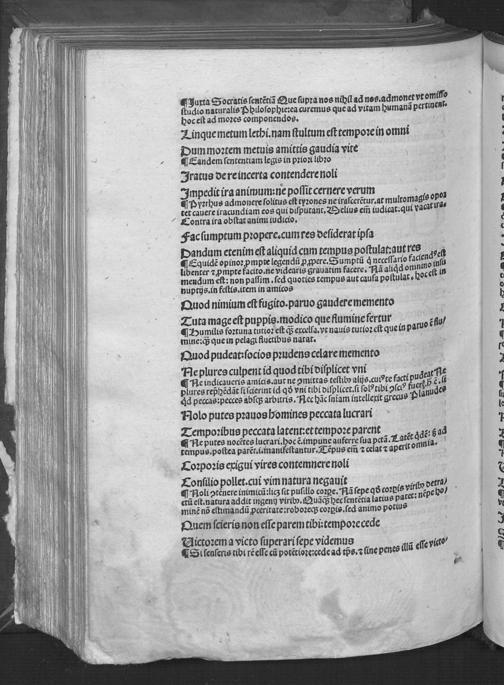 ¶Juxta Socratis sentētiā Que supra nos nihil ad nos. admonet vt omisso
studio naturalis Philosophie: ea curemus que ad vitam humanā pertinent.
hoc est ad mores componendos.
Linque metum lethi. nam stultum est tempore in omni
Dum mortem metuis amittis gaudia vite
¶Eandem sententiam legis in priori libro
Iratus de re incerta contendere noli
Impedit ira animum: ne possit cernere verum
¶Pyrrhus admonere solitus est tyrones ne irascerētur. at multomagis opor
tet cauere iracundiam eos qui disputant. Melius em̄ iudicat: qui vacat ira.
Contra ira obstat animi iudicio.
Fac sumptum propere. cum res desiderat ipsa
Dandum etenim est aliquid cum tempus postulat: aut res
¶Equidē opinor ꝓmpte legendū ꝓpere. Sumptū q̄ necessario faciendꝰ est
libenter ⁊ ꝓmpte facito. ne videaris grauatim facere. Nā aliqd omnino insu
mendum est: non passim. sed quoties tempus aut causa postulat. hoc est in
nuptijs. in festis. item in amicos
Quod nimium est fugito. paruo gaudere memento
Tuta mage est puppis. modico que flumine fertur
¶Humilis fortuna tutior est qͣȝ excelsa. vt nauis tutior est que in paruo ē flu/
mine: qͣȝ que in pelagi fluctibus natat.
Quod pudeat: socios prudens celare memento
Ne plures culpent id quod tibi displicet vni
¶Ne indicaueris amicis. aut ne ꝯmittas testibꝰ alijs. cuiꝰ te facti pudeat Ne
plures rephēdāt si scierint id qd̄ vni tibi displicet.
qd peccas: pecces absqȝ arbitris. Nec hāc sniam intellexit grecus Planudes
Nolo putes prauos homines peccata lucrari
Temporibus peccata latent: et tempore parent
¶Ne putes nocētes lucrari. hoc ē. impune auferre sua pctā.
tempus. postea parēt. i. manifestantur. Tēpus em̄ ⁊ celat ⁊ aperit omnia.
Corporis exigui vires contemnere noli
Consilio pollet. cui vim natura negauit
¶Noli ꝯtēnere inimicū. licȝ sit pusillo corꝑe. Nā sepe qd̄ corꝑis viribꝰ detra/
ctū est. natura addit ingenij viribꝰ. Quāqȝ hec sentētia latius patet: nēpe ho/
minē nō estimandū ꝓceritate: roboreqȝ corꝑis. sed animo potius
Quem scieris non esse parem tibi: tempore cede
Victorem a victo superari sepe videmus
¶Si senseris tibi rē esse cū potētiore: cede ad tp̄s. ⁊ sine penes illū esse victo/